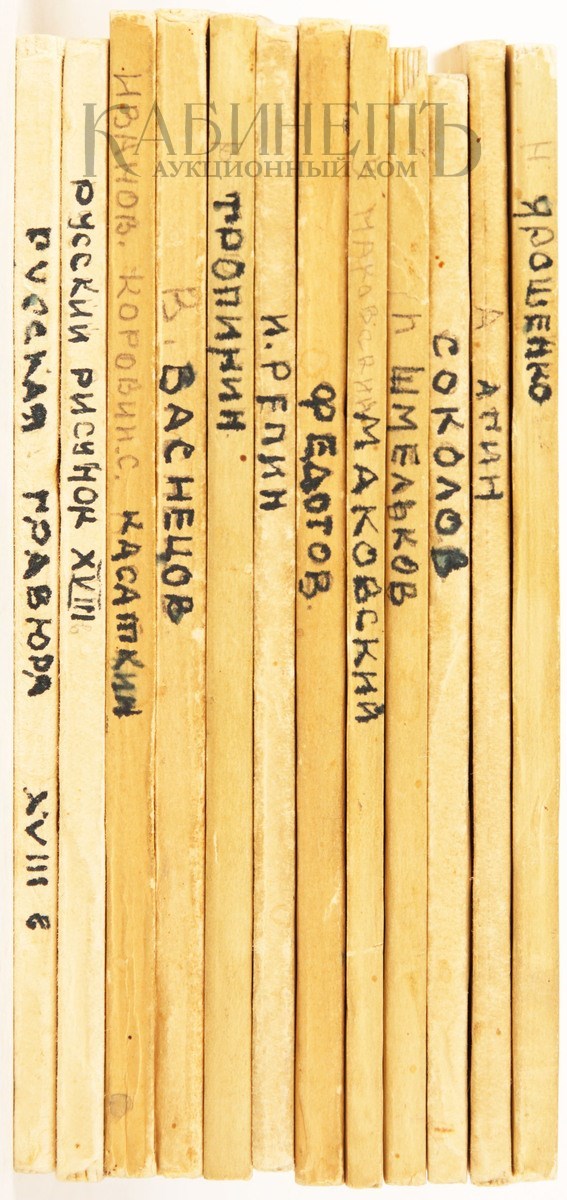 КАБИНЕТЪ
АУКЦИОННЫЙ ДОМ
РУССКАЯ ГРАВЮРА XVIII В
РУССКИЙ РИСУНОК XVIII
ИВАНОВ. КОРОВИН С. КАСАТКИН
В. ВАСНЕЦОВ
ТРОПИНИН
И. РЕПИН
ФЕДОТОВ.
МАКОВСКИЙ МАКОВСКИЙ
П ШМЕЛЬКОВ
СОКОЛОВ
А АГИН
Н ЯРОШЕНКО